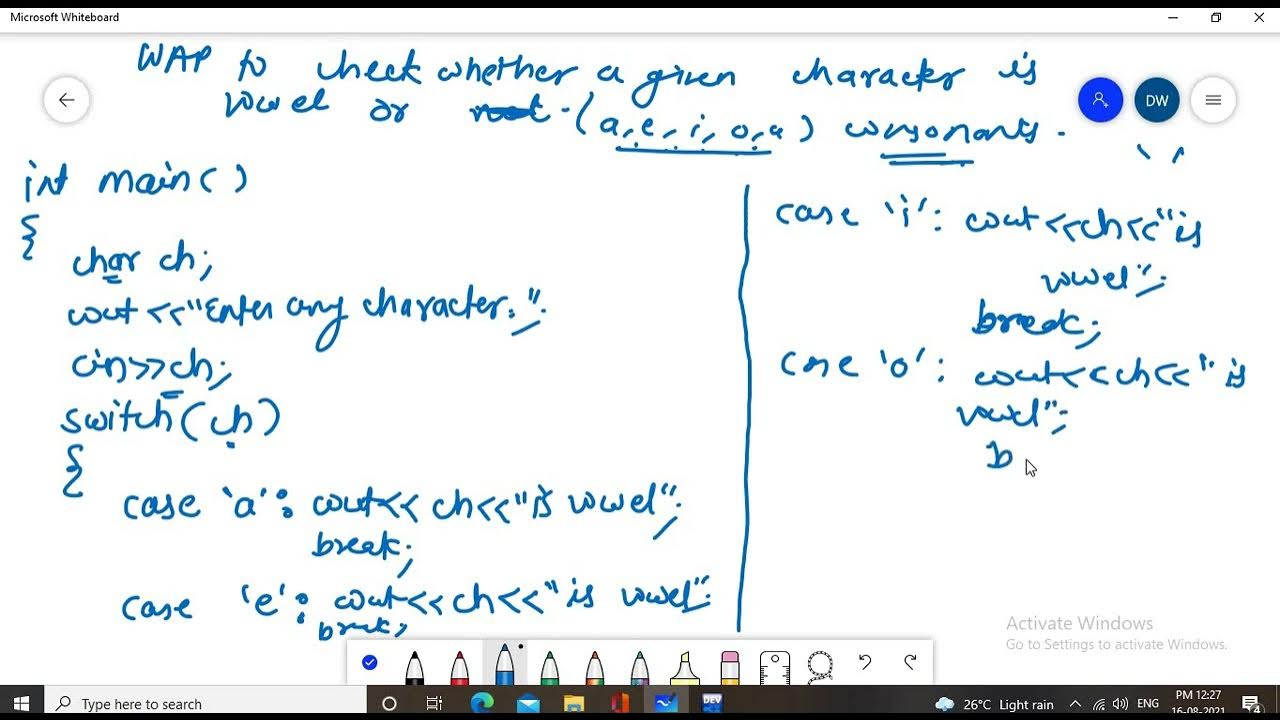 Microsoft Whiteboard
WAP to check whether a given character is
vowel or not. (a, e, i, o, u) consonants.
DW
int main()
{
char ch;
cout<<"Enter any character:";
cin>>ch;
switch(ch)
{
case 'a': cout<< ch<<"is vowel";
break;
case 'e': cout<<ch<<"is vowel";
break;
case 'i': cout<<ch<<"is
vowel";
break;
case 'o': cout<<ch<<"is
vowel";
b
Activate Windows
Go to Settings to activate Windows.
Type here to search
DEV
26°C Light rain
ENG
PM 12:27
16-08-2021
4